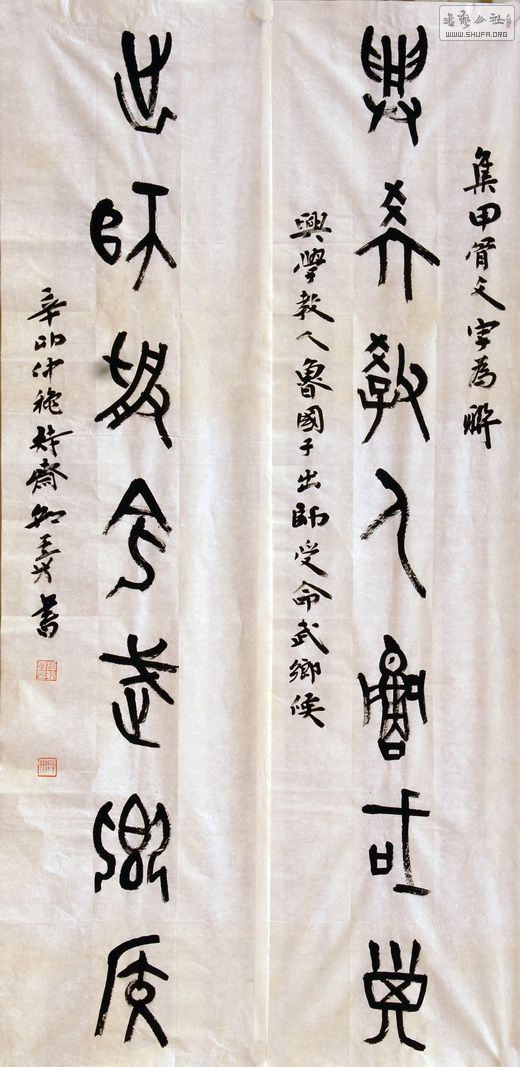 书艺公社
WWW.SHUFA.ORG
集甲骨文字為聯
興學教人魯國子
興學教人魯國子出師受命武鄉侯
出師受命武鄉侯
辛卯仲穐 齋 書